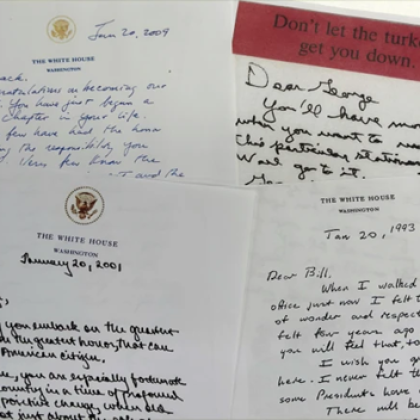 Jan 20, 2009
THE WHITE HOUSE
WASHINGTON
ack.
ngratulations on becoming our
. You have just begun a
chapter in your life.
few have had the honor
ng the responsibility you
d. Very few know the
t and the
Don't let the turke
get you down.
Dear George
You'll have mom
when you want to us
this particular station
Well go to it.
THE WHITE HOUSE
WASHINGTON
January 20, 2001
you embark on the greatest
the greatest honor, that can
American citizen.
you are especially fortunate
country in a time of profound
positive change, when old
not just about the
THE WHITE HOUSE
WASHINGTON
Jan 20, 1993
Dear Bill,
When I walked
office just now I felt
of wonder and respect
felt four years ago
you will feel that, to
I wish you
here. I never felt the
some Presidents have
There will be